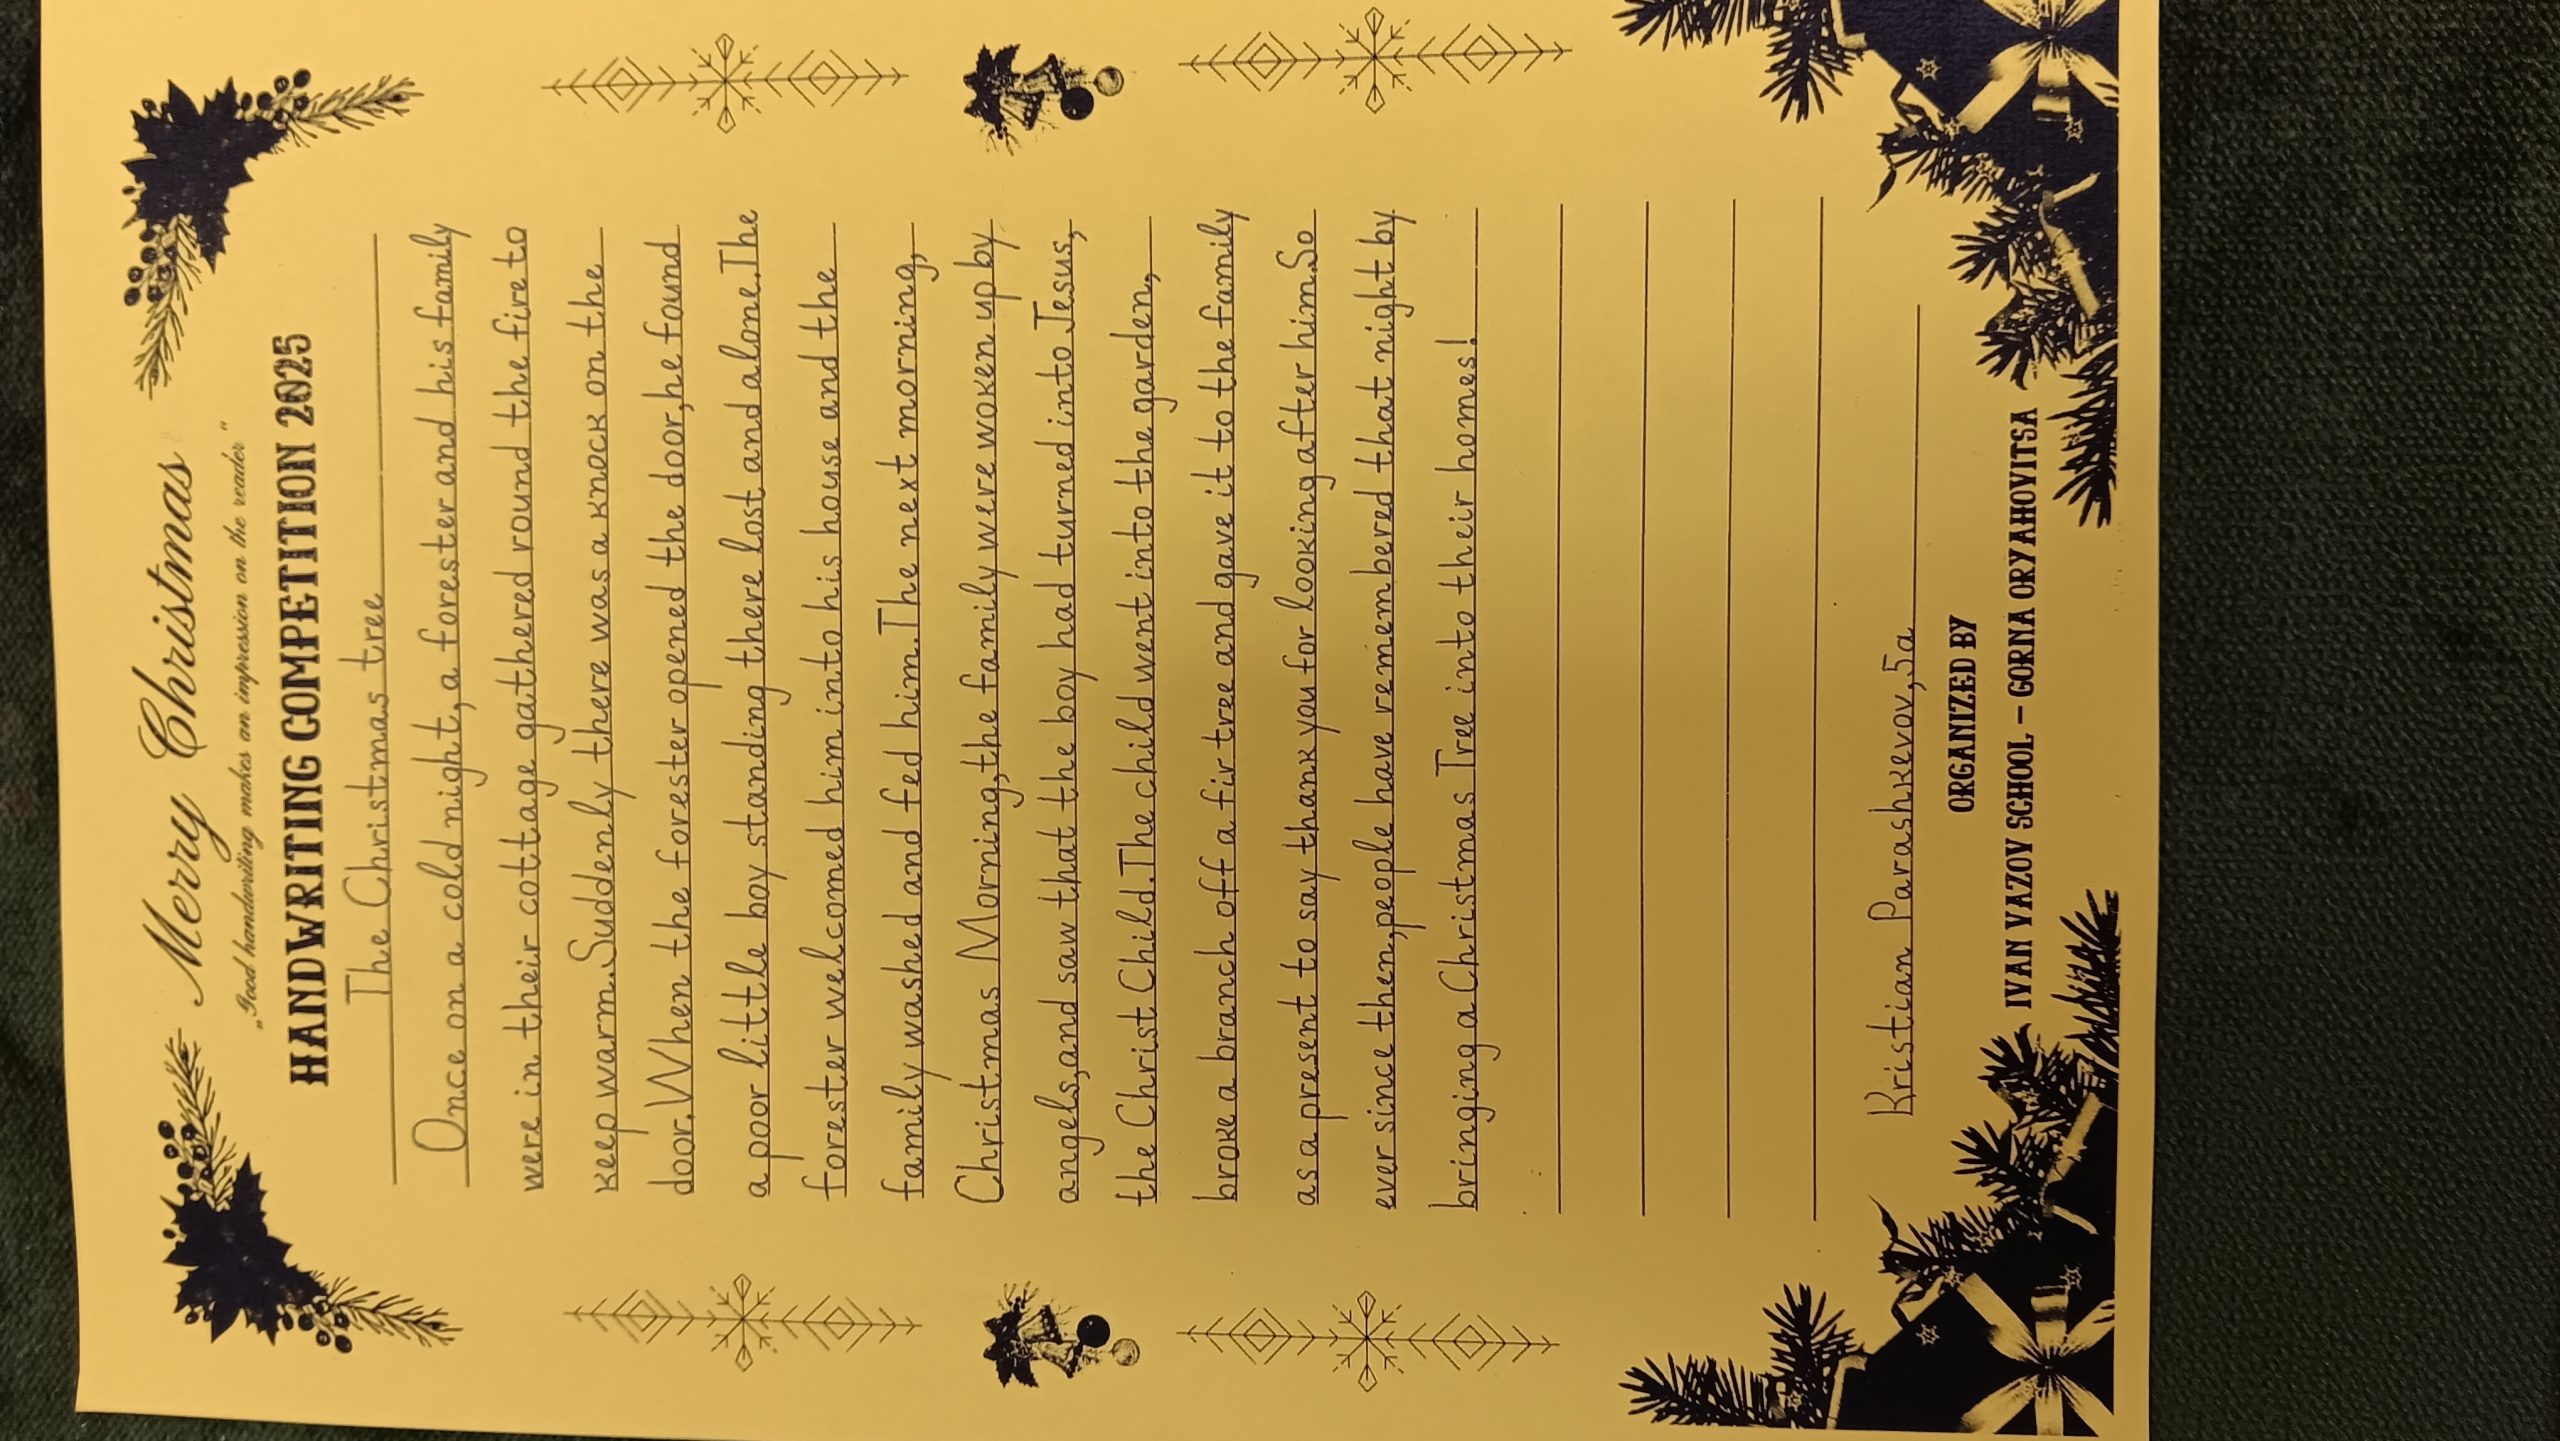 Merry Christmas
„Good handwriting makes an impression on the reader"
HANDWRITING COMPETITION 2025
The Christmas tree
Once on a cold night, a forester and his family
were in their cottage gathered round the fire to
keep warm. Suddenly there was a knock on the
door. When the forester opened the door, he found
a poor little boy standing there lost and alone. The
forester welcomed him into his house and the
family washed and fed him. The next morning,
Christmas Morning, the family were woken up by
angels, and saw that the boy had turned into Jesus,
the Christ Child. The child went into the garden,
broke a branch off a fir tree and gave it to the family
as a present to say thank you for looking after him. So
ever since then, people have remembered that night by
bringing a Christmas Tree into their homes!
Kristian Parashkevov, 5a
ORGANIZED BY
IVAN VAZOV SCHOOL – GORNA ORYAHOVITSA